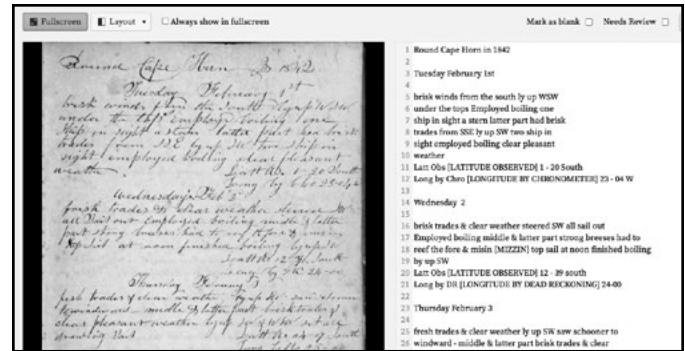 Fullscreen Layout Always show in fullscreen Mark as blank Needs Review
Round Cape Horn in 1842
Tuesday February 1st
brisk winds from the south ly up WSW
under the tops Employed boiling one
ship in sight a stern latter part had brisk
trades from SSE ly up SW two ship in
sight employed boiling clear pleasant
weather
Latt 1-20 South
Long by 23-04
Wednesday 2
fresh trades & clear weather steered SW
all sail out Employed boiling middle & latter
part strong breeses had to reef the fore & misin
top sail at noon finished boiling by up SW
Latt 12 39 South
Long by DR 24-00
Thursday February 3
fresh trades & clear weather ly up SW saw schooner
to windward - middle & latter part brisk trades &
clear pleasant weather ly up SW
Latt of South
1 Round Cape Horn in 1842
2
3 Tuesday February 1st
4
5 brisk winds from the south ly up WSW
6 under the tops Employed boiling one
7 ship in sight a stern latter part had brisk
8 trades from SSE ly up SW two ship in
9 sight employed boiling clear pleasant
10 weather
11 Latt Obs [LATITUDE OBSERVED] 1 - 20 South
12 Long by Chro [LONGITUDE BY CHRONOMETER] 23 - 04 W
13
14 Wednesday 2
15
16 brisk trades & clear weather steered SW all sail out
17 Employed boiling middle & latter part strong breeses had to
18 reef the fore & misin [MIZZIN] top sail at noon finished boiling
19 by up SW
20 Latt Obs [LATITUDE OBSERVED] 12 - 39 south
21 Long by DR [LONGITUDE BY DEAD RECKONING] 24-00
22
23 Thursday February 3
24
25 fresh trades & clear weather ly up SW saw schooner to
26 windward - middle & latter part brisk trades & clear